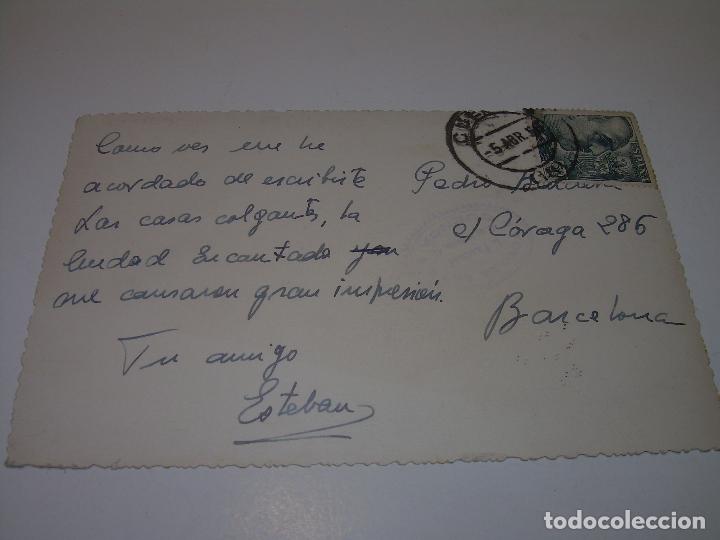 Como ves me he
acordado de escribirte
Las casas colgantes, la
Ciudad Encantada
me causaron gran impresión.
Tu amigo
Esteban
Pedro
c/ Córcega 286
Barcelona
CUE
-5 ABR. 5
ESPAÑA
todocoleccion.net